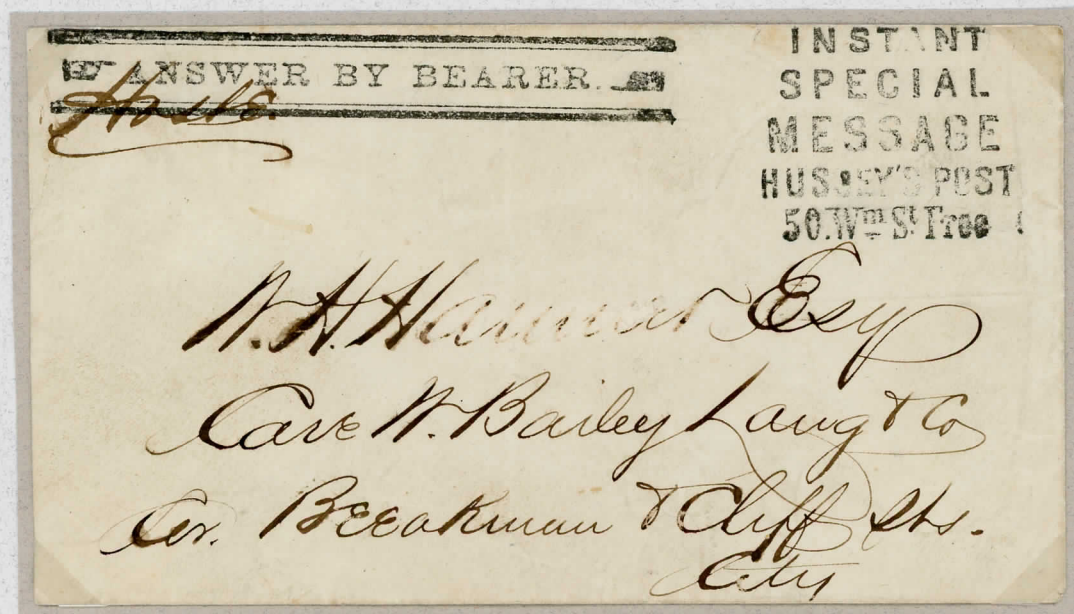 ANSWER BY BEARER.
Haste.
INSTANT
SPECIAL
MESSAGE
HUSSEY'S POST
50.Wm St Free
W. H. Esq
Care W. Bailey Lang & Co
Cor. Beeakman & Cliff Sts.
City